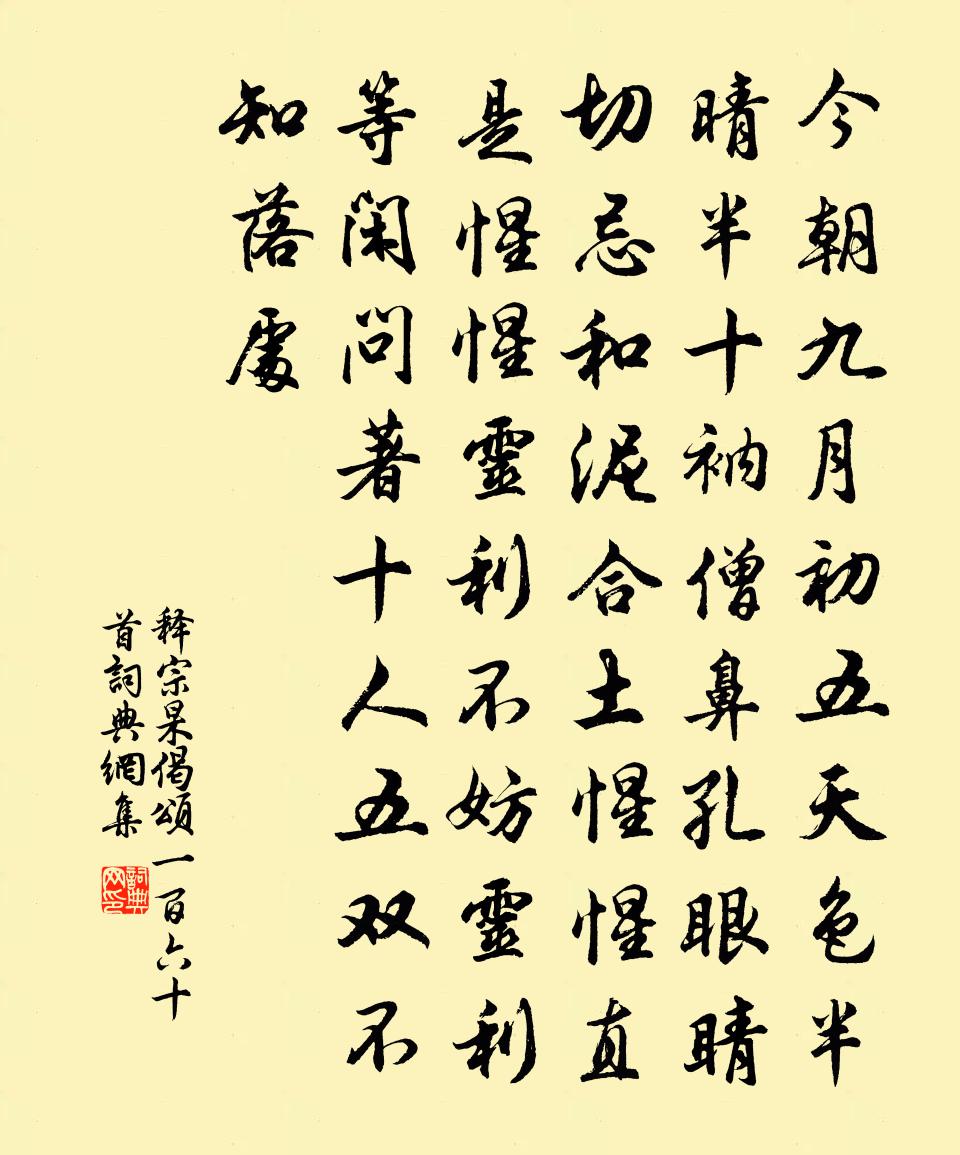 今朝九月初五天色半
晴半十衲僧鼻孔眼晴
切忌和泥合土惺惺直
是惺惺靈利不妨靈利
等閑問著十人五双不
知落處
释宗杲偈頌一百六十
首詞典網集
詞典网印